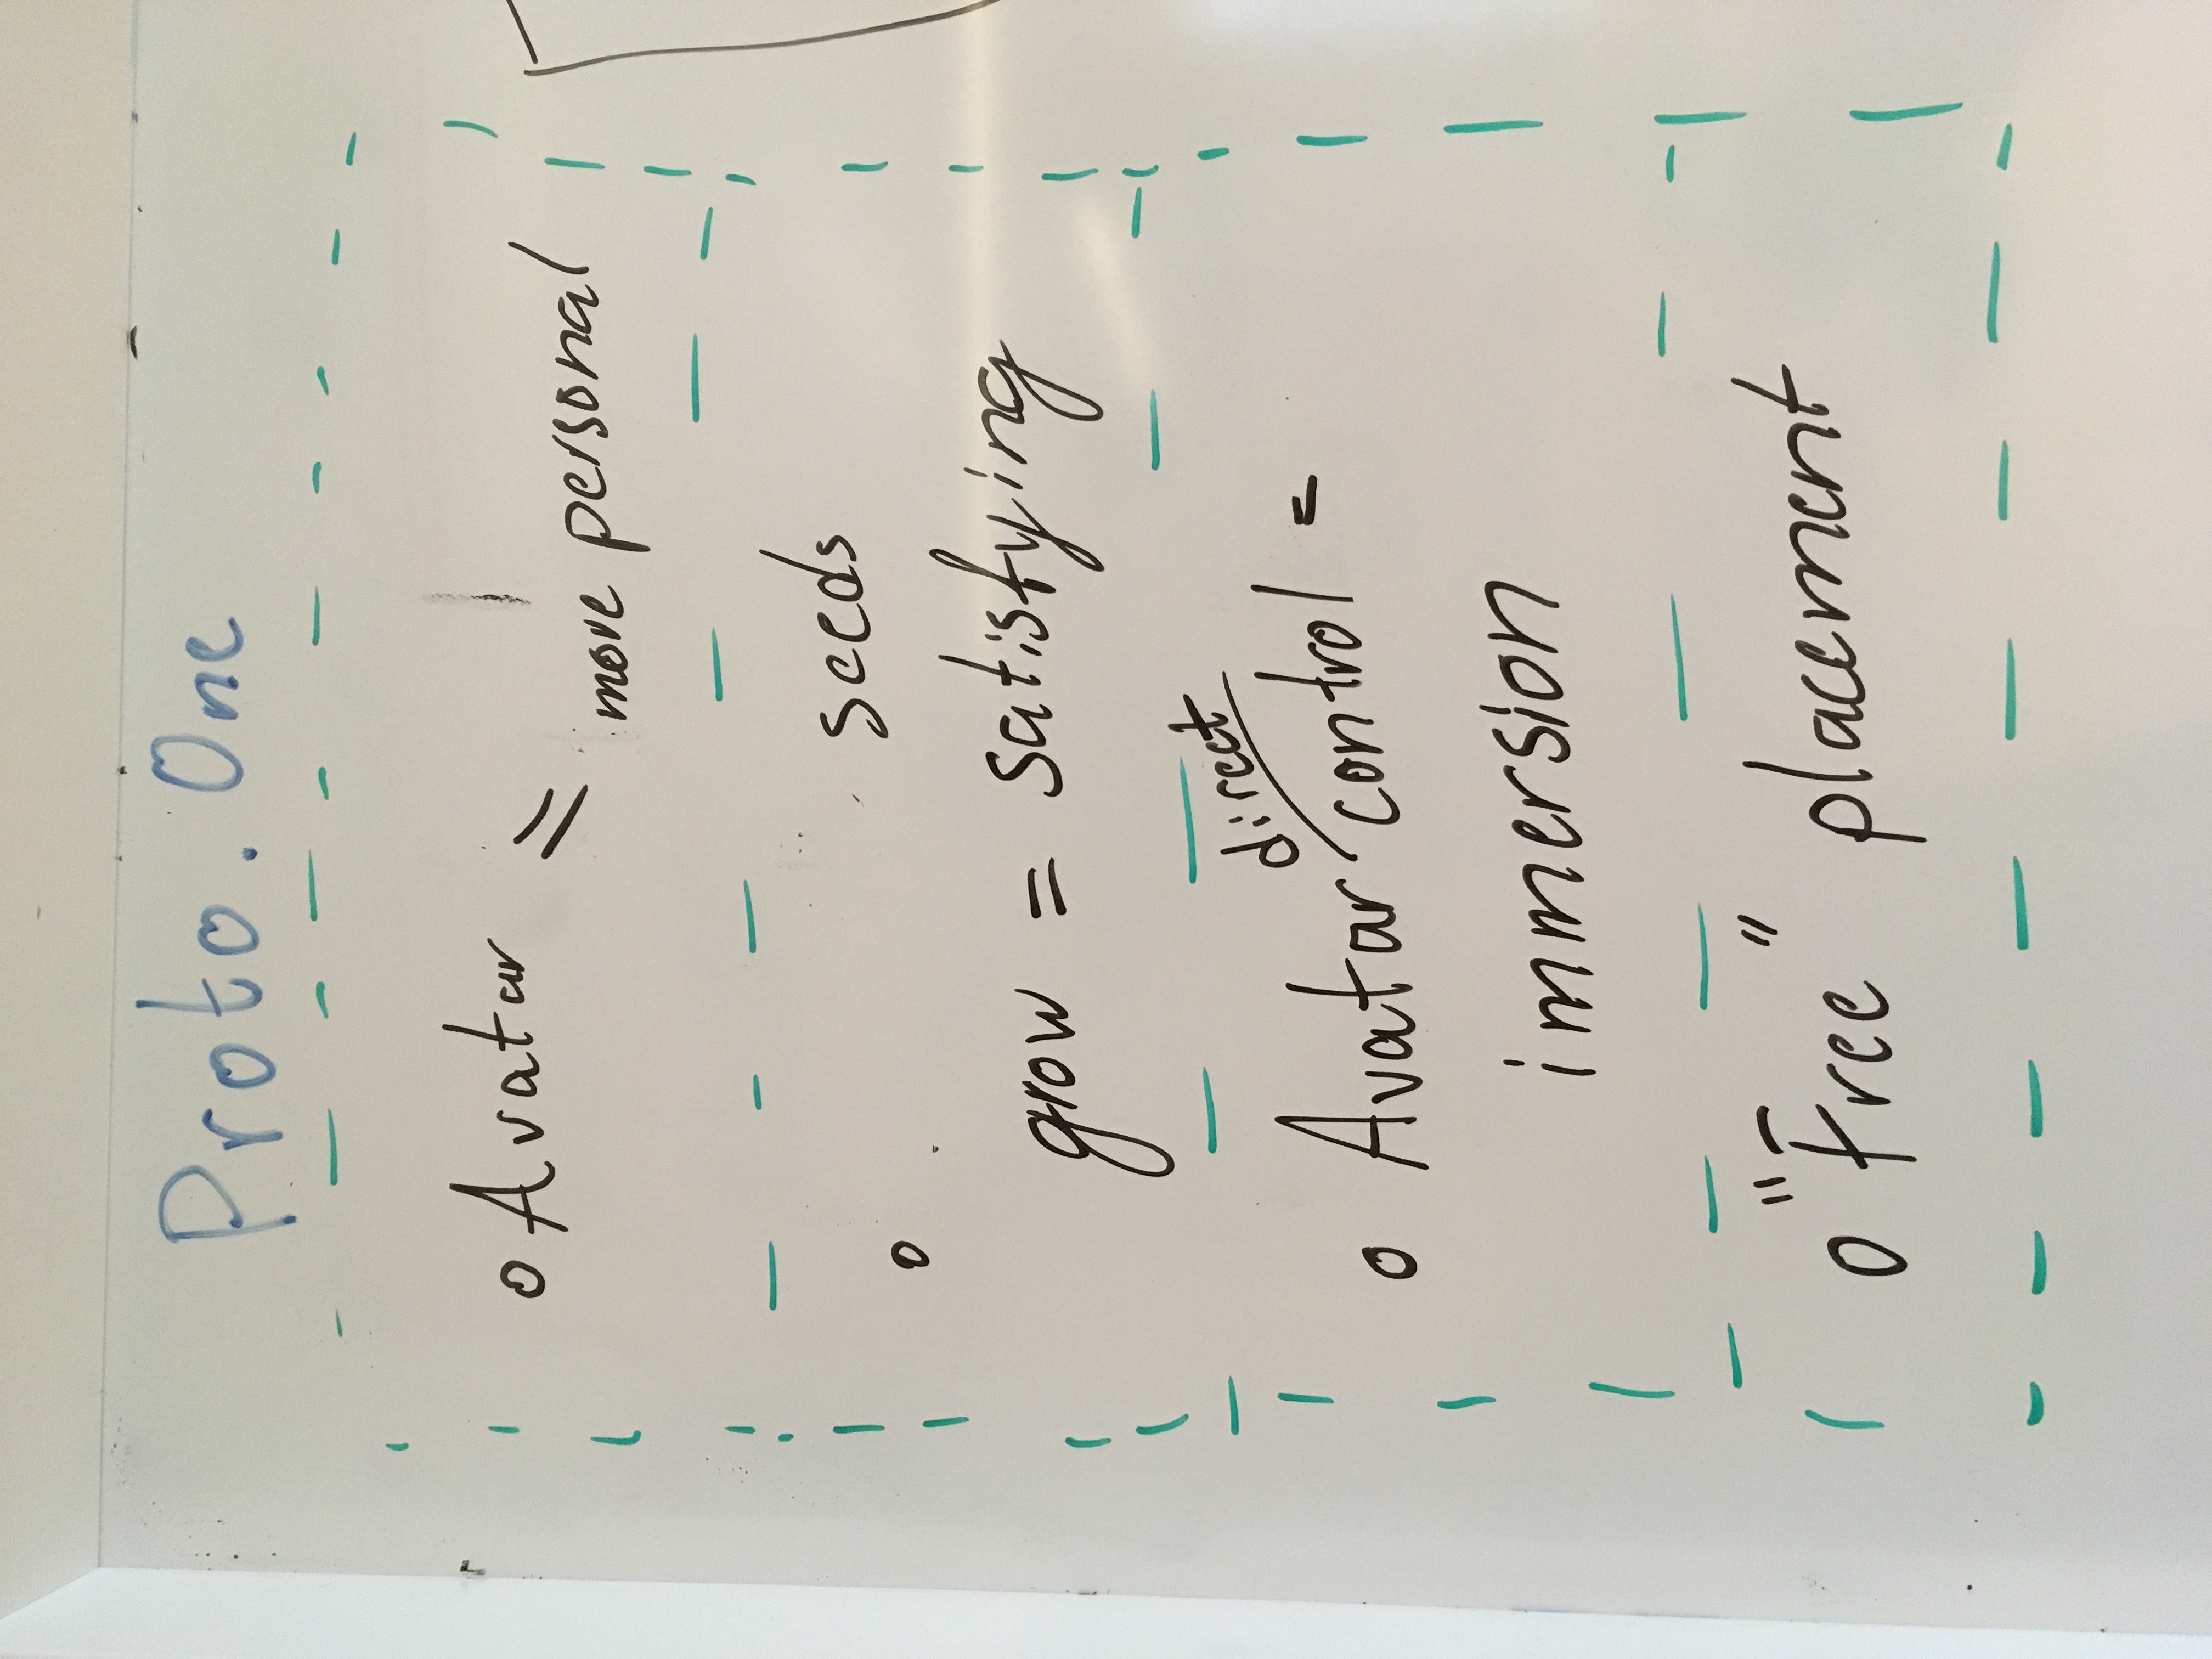 Proto. One
o Avatar = more personal
o seeds
grow = satisfying
direct
o Avatar control =
immersion
o "Free" placement